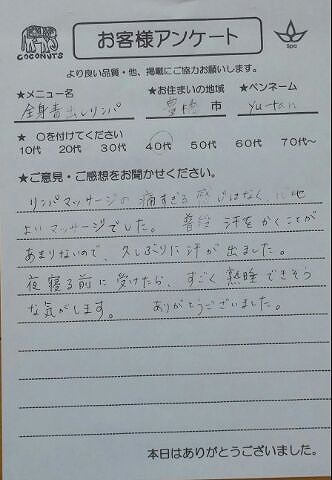 COCONUTS
お客様アンケート
Spa
より良い品質・他、掲載にご協力お願いします。
★メニュー名 ★お住まいの地域 ★ペンネーム
全身毒出しリンパ 豊橋 市 yu-tan
★ ○を付けてください
10代 20代 30代 40代 50代 60代 70代~
★ご意見・ご感想をお聞かせください。
リンパマッサージの痛すぎる感じはなく、心地
よいマッサージでした。 普段 汗をかくことが
あまりないので、久しぶりに汗が出ました。
夜寝る前に受けたら、すごく熟睡できそう
な気がします。 ありがとうございました。
本日はありがとうございました。